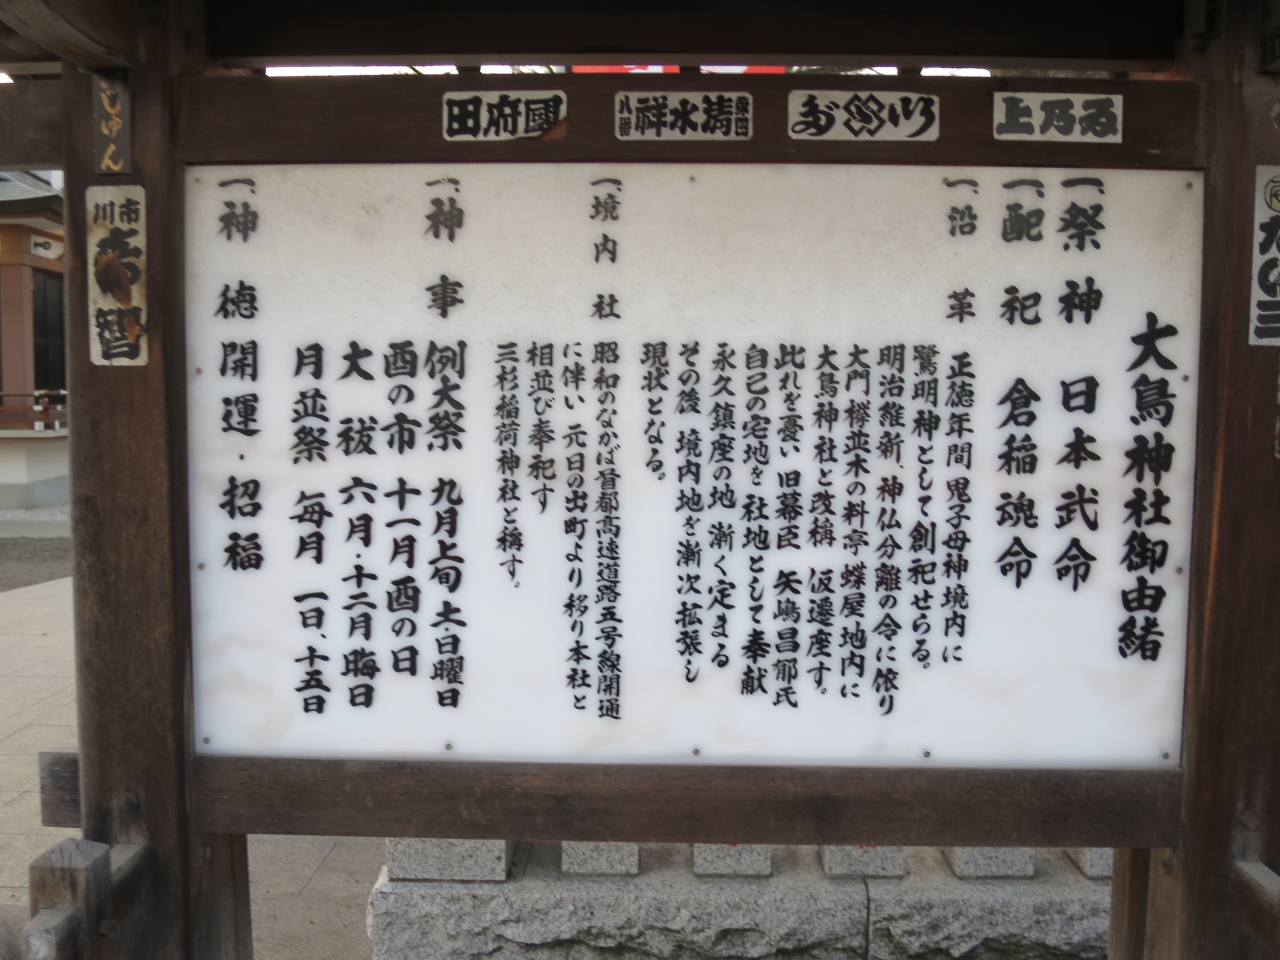 大鳥神社御由緒
一、祭神 日本武命
一、配祀 倉稲魂命
一、沿革 正徳年間鬼子母神境内に
鷺明神として創祀せらる。
明治維新、神仏分離の令に依り
大門欅並木の料亭蝶屋地内に
大鳥神社と改稱 仮遷座す。
此れを憂い 旧幕臣 矢嶋昌郁氏
自己の宅地を 社地として奉献
永久鎮座の地 漸く定まる
その後 境内地を漸次拡張し
現状となる。
一、境内社 昭和のなかば首都高速道路五号線開通
に伴い 元日の出町より移り本社と
相並び奉祀す
三杉稲荷神社と稱す。
一、神事 例大祭 九月上旬 土・日曜日
酉の市 十一月酉の日
大祓 六月・十二月晦日
月並祭 毎月 一日、十五日
一、神徳 開運・招福
國府田
清水祥
八番
上乃
じゅん
市川